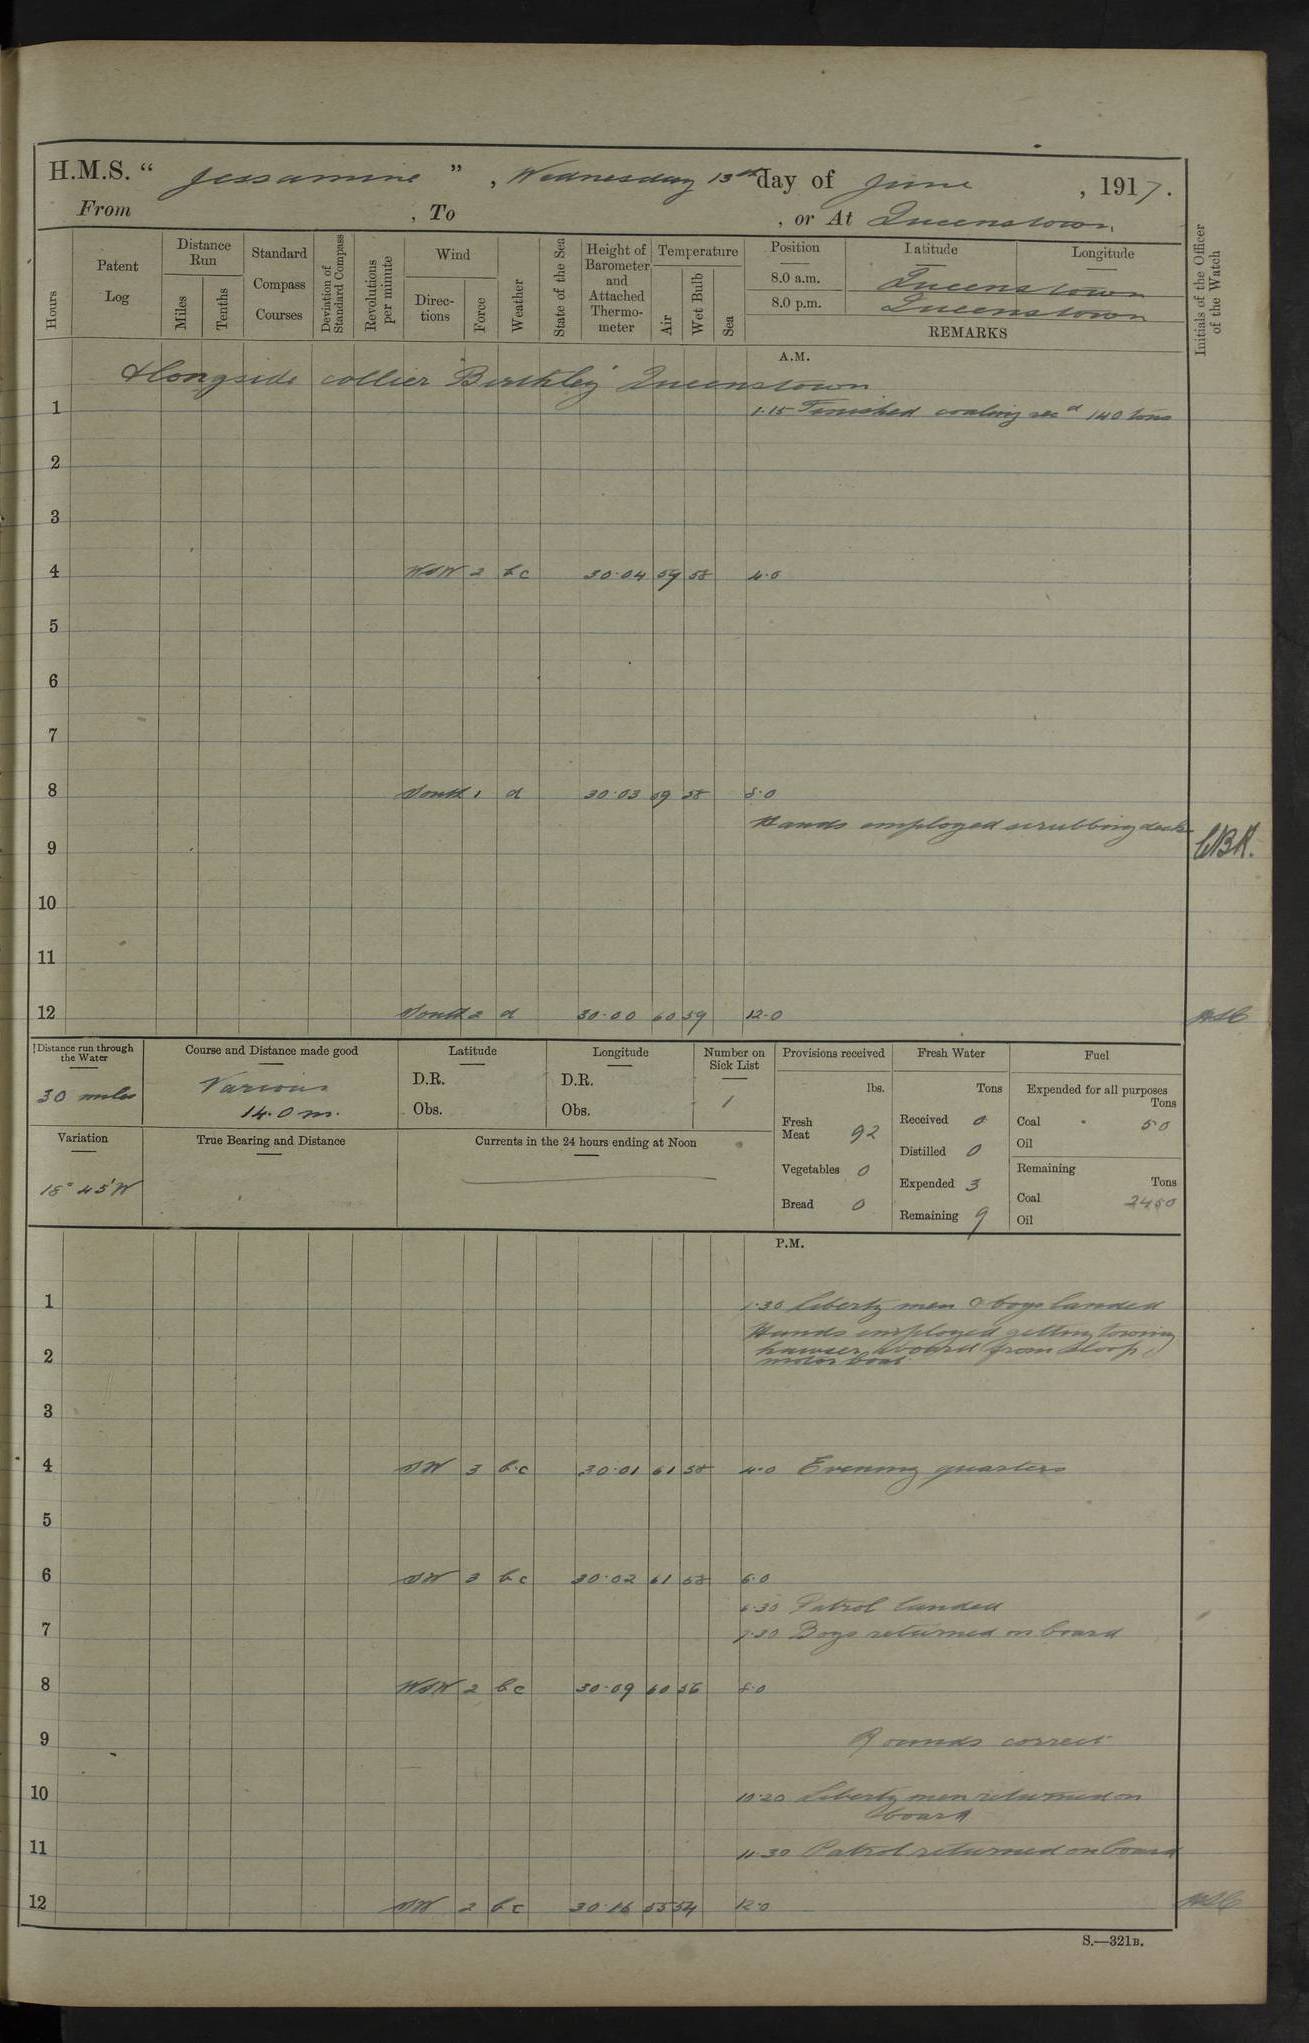 H.M.S. “ Jessamine ” , Wednesday 13th day of June , 1917.
From , To , or At Queenstown
Hours
Patent Log
Distance Run
Miles
Tenths
Standard Compass Courses
Deviation of Standard Compass
Revolutions per minute
Wind
Direc-tions
Force
Weather
State of the Sea
Height of Barometer and Attached Thermo-meter
Temperature
Air
Wet Bulb
Sea
Position Latitude Longitude
8.0 a.m. Queenstown
8.0 p.m. Queenstown
REMARKS
Initials of the Officer of the Watch
A.M.
Alongside collier Queenstown
1 1.15 Finished coaling recd 140 tons
2
3
4 WSW 2 bc 30.04 59 58 4.0
5
6
7
8 South 1 d 30.03 59 58 8.0
Hands employed scrubbing decks
9
10
11
12 South 2 d 30.00 60 59 12.0
Distance run through the Water
30 miles
Course and Distance made good
Various
14.0 m.
Latitude
D.R.
Obs.
Longitude
D.R.
Obs.
Number on Sick List
1
Provisions received
lbs.
Fresh Meat 92
Vegetables 0
Bread 0
Fresh Water
Tons
Received 0
Distilled 0
Expended 3
Remaining 9
Fuel
Expended for all purposes
Tons
Coal 50
Oil
Remaining
Tons
Coal 2450
Oil
Variation
18° 45' W
True Bearing and Distance
Currents in the 24 hours ending at Noon
P.M.
1 1.30 Liberty men & boys landed
Hands employed getting towing
hawser aboard from sloop
2 motor boat
3
4 SW 3 b.c 30.01 61 58 4.0 Evening quarters
5
6 SW 3 b.c 30.02 61 58 6.0
6.30 Patrol landed
7 7.30 Boys returned on board
8 WSW 2 bc 30.09 60 56 8.0
9 Rounds correct
10 10.20 Liberty men returned on
board
11 11.30 Patrol returned on board
12 SW 2 bc 30.16 55 54 12.0
S.—321B.